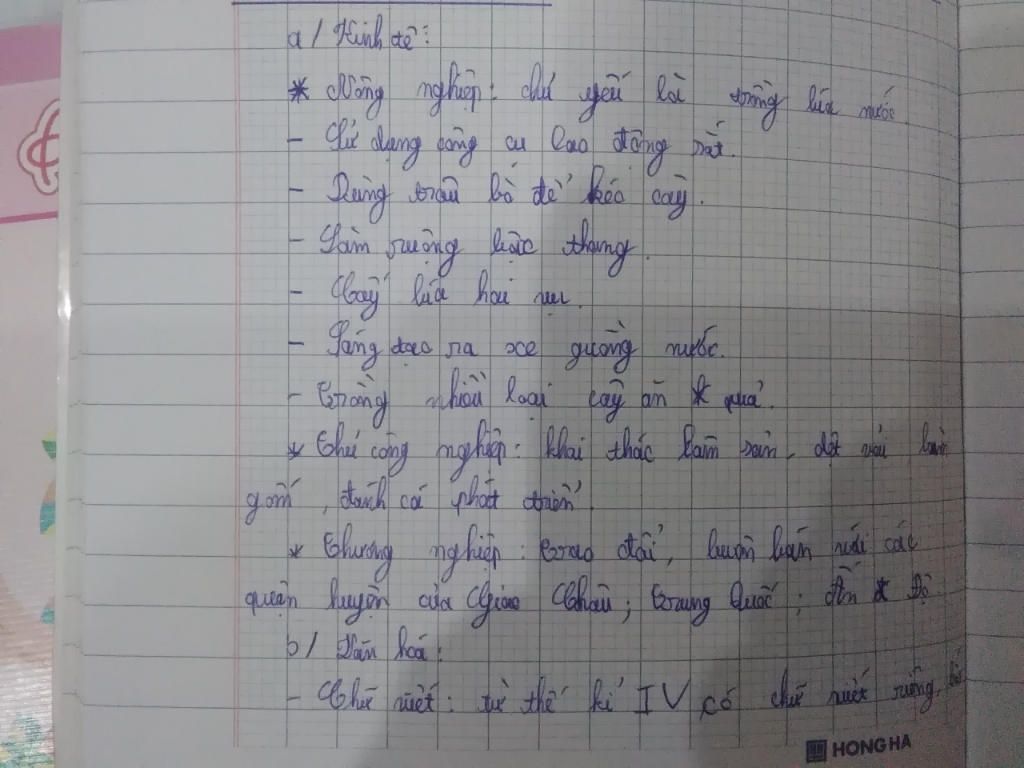 a / Kinh tế:
* Nông nghiệp: chủ yếu là trồng lúa nước
- Sử dụng công cụ lao động sắt.
- Dùng trâu bò để kéo cày.
- Làm ruộng bậc thang.
- Cấy lúa hai vụ.
- Sáng tạo ra xe guồng nước.
- Trồng nhiều loại cây ăn quả.
* Thủ công nghiệp: khai thác lâm sản, dệt vải làm
gốm, đánh cá phát triển.
* Thương nghiệp: trao đổi, buôn bán với các
quận huyện của Giao Châu; Trung Quốc; Ấn Độ.
b / Văn hoá:
- Chữ viết: từ thế kỉ IV có chữ viết riêng,
HONG HA